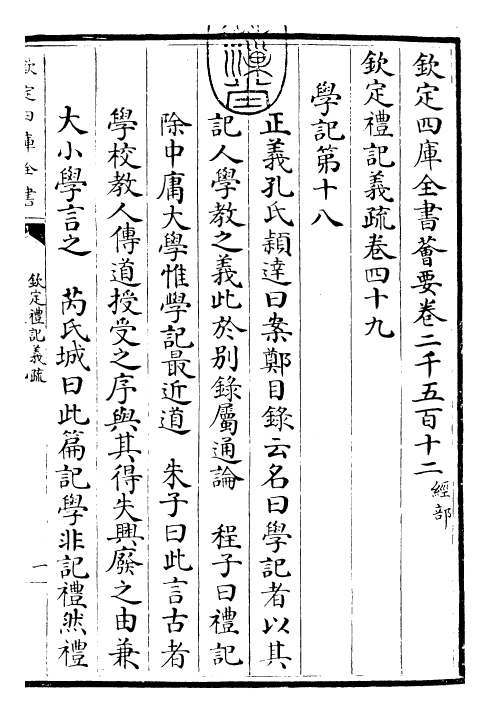 欽定四庫全書薈要卷二千五百十二經部
欽定禮記義疏卷四十九
學記第十八
正義孔氏頴達曰案鄭目錄云名曰學記者以其
記人學教之義此於别錄屬通論 程子曰禮記
除中庸大學惟學記最近道 朱子曰此言古者
學校教人傳道授受之序與其得失興廢之由兼
大小學言之 芮氏城曰此篇記學非記禮然禮
欽定四庫全書
欽定禮記義疏
一